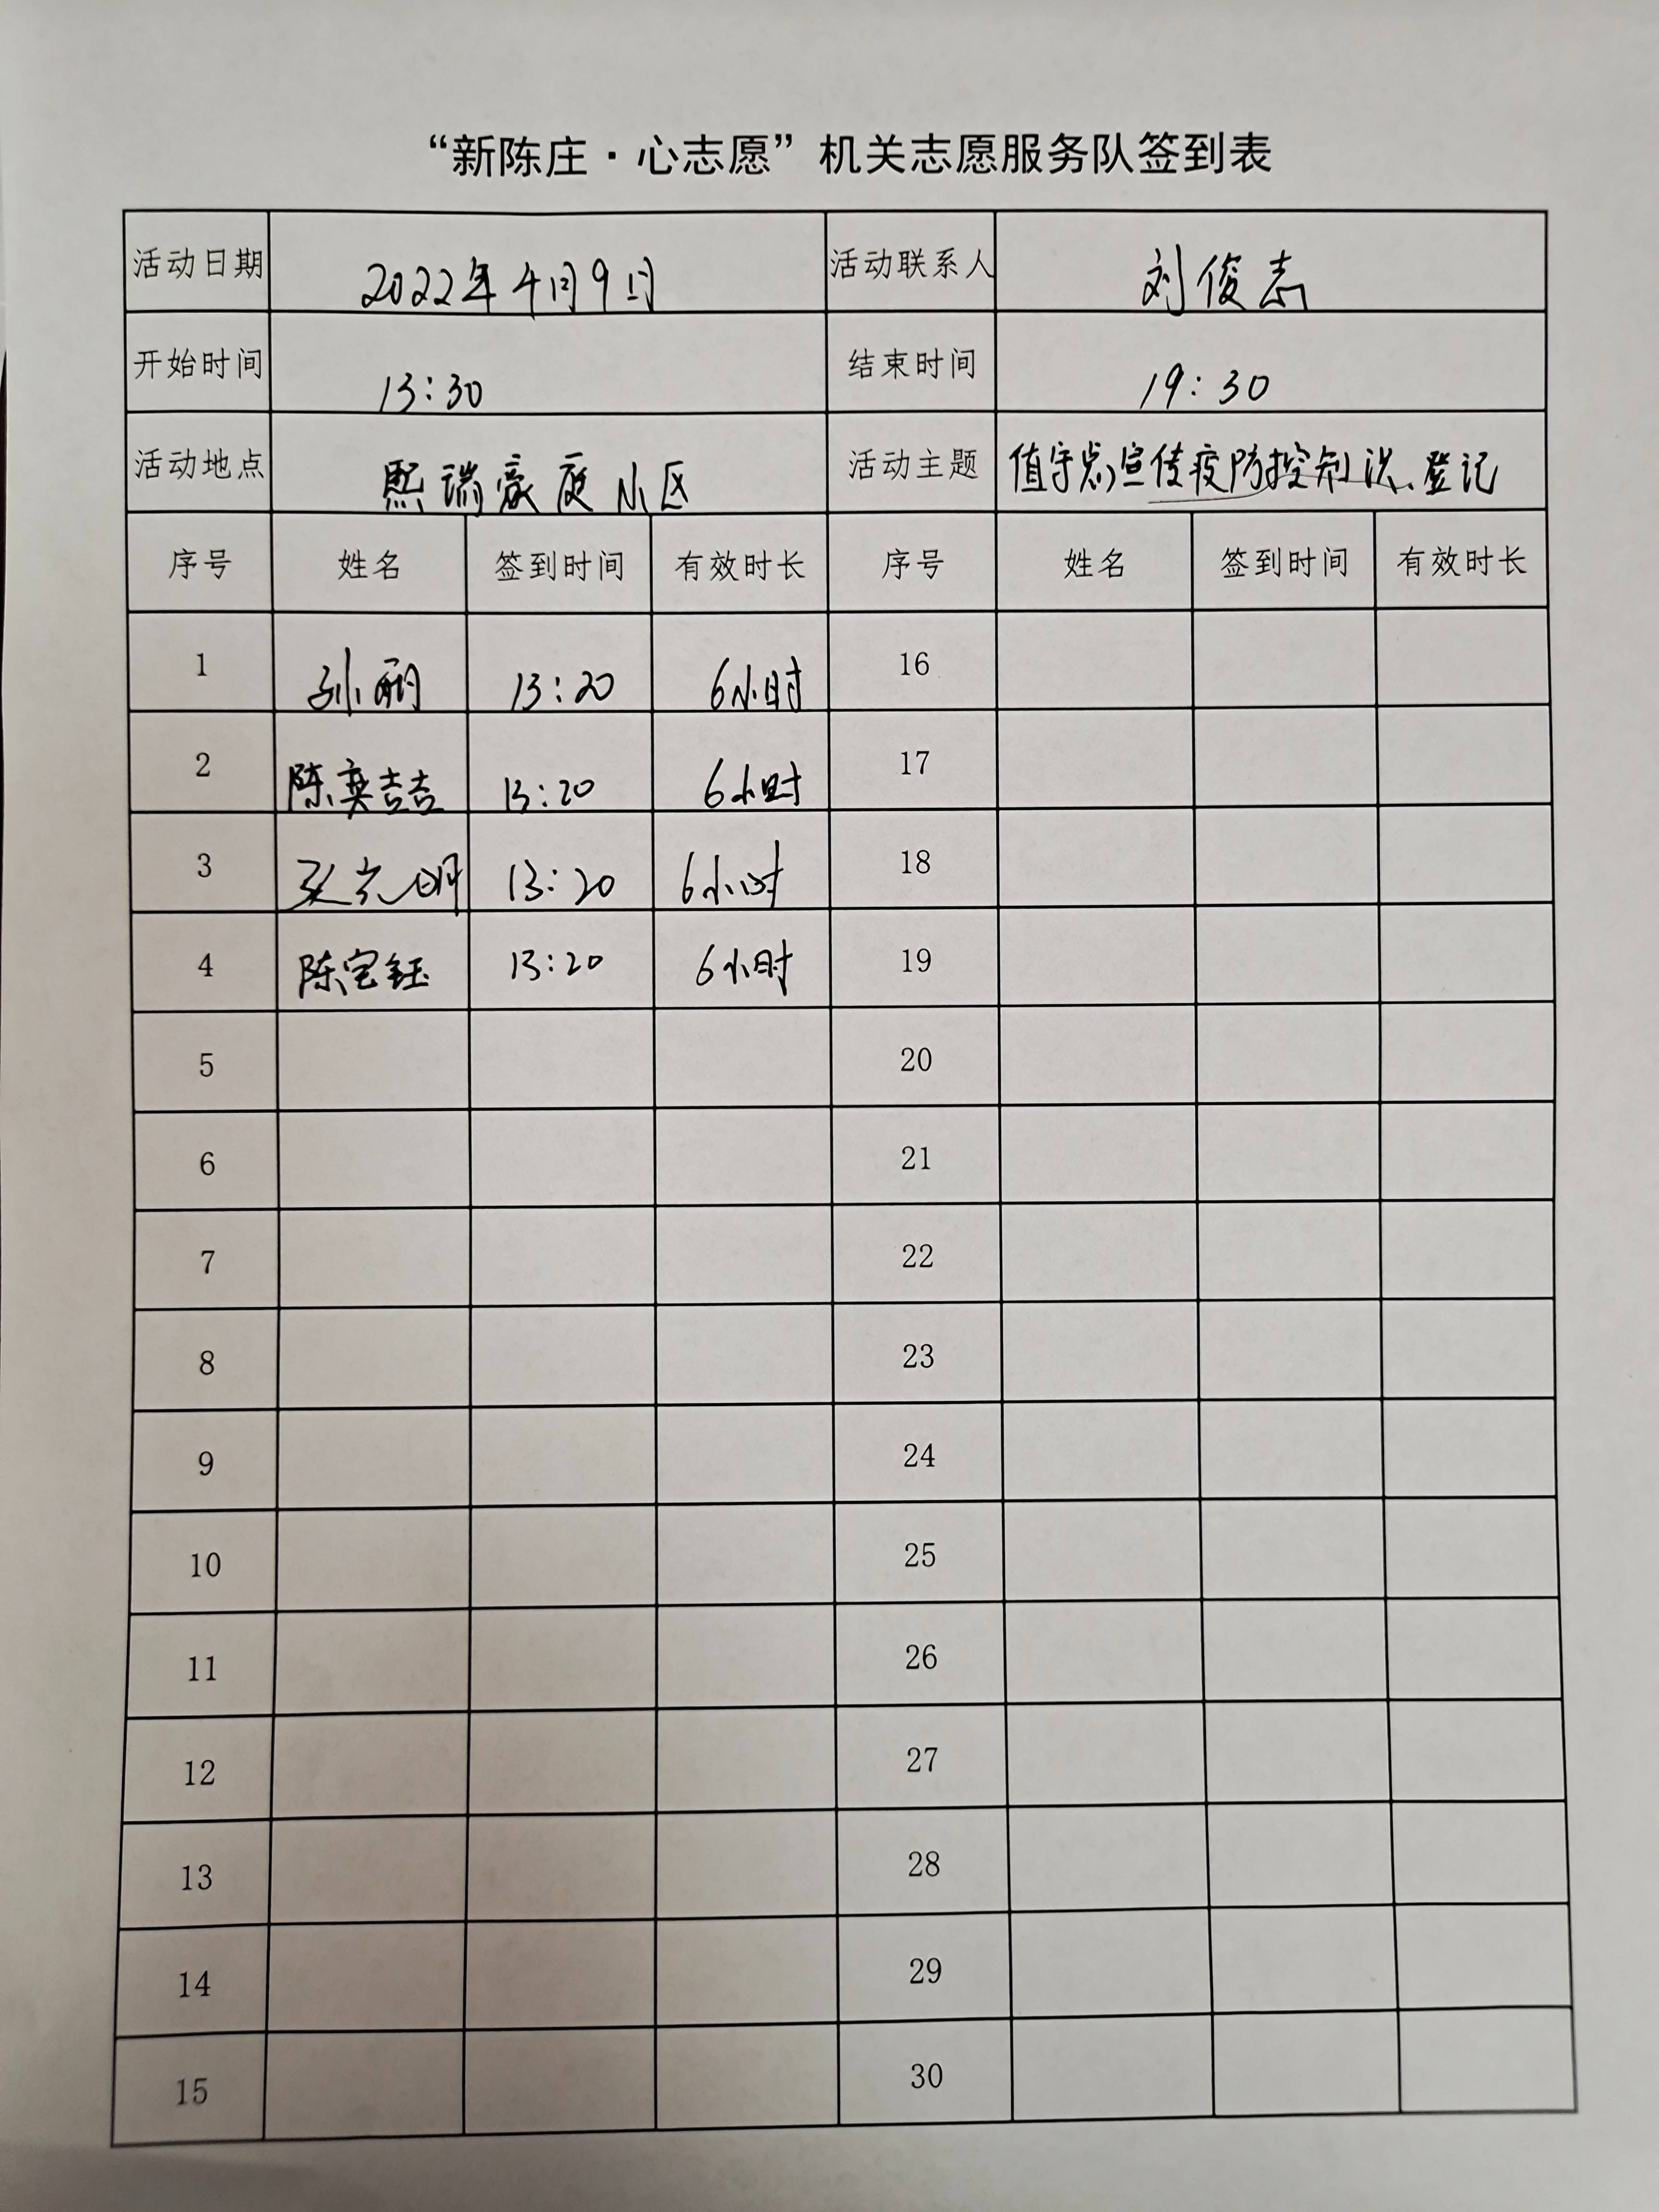 “新陈庄·心志愿”机关志愿服务队签到表
活动日期 2022年4月9日 活动联系人 刘俊志
开始时间 13:30 结束时间 19:30
活动地点 熙瑞豪庭小区 活动主题 值守点宣传疫防控知识、登记
序号 姓名 签到时间 有效时长 序号 姓名 签到时间 有效时长
1 孙丽 13:20 6小时 16
2 陈奕喆 13:20 6小时 17
3 13:20 6小时 18
4 陈宝钰 13:20 6小时 19
5 20
6 21
7 22
8 23
9 24
10 25
11 26
12 27
13 28
14 29
15 30